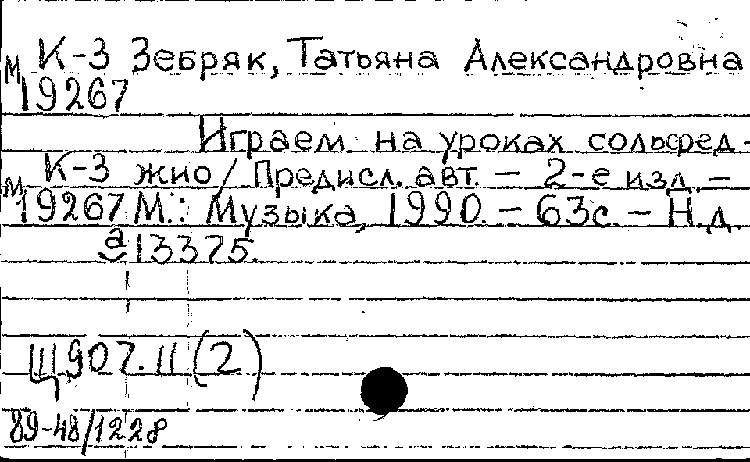 м К-3 Зебряк, Татьяна Александровна
19267
Играем на уроках сольфед-
м К-3 жио / Предисл. авт. - 2-е изд. -
19267 М.: Музыка, 1990. - 63с. - Н.д.
а 13375.
Щ907.11(2)
89-48/1228